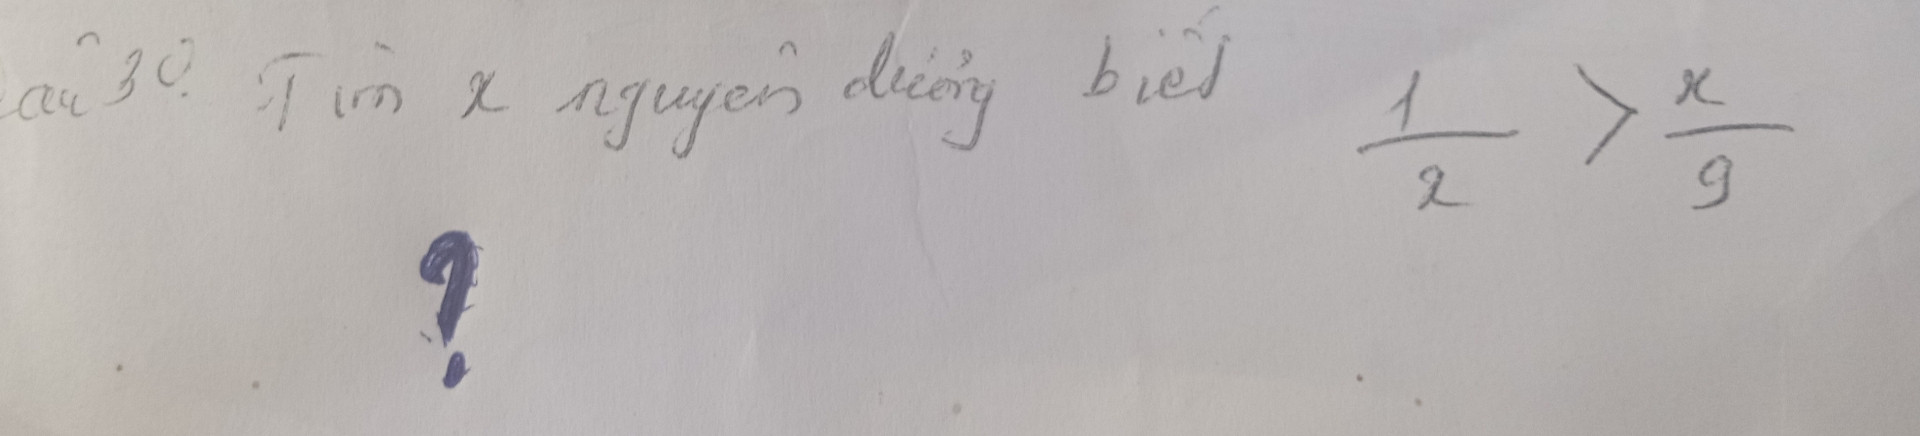 Câu 30. Tìm x nguyên dương biết 1/2 > x/9
?